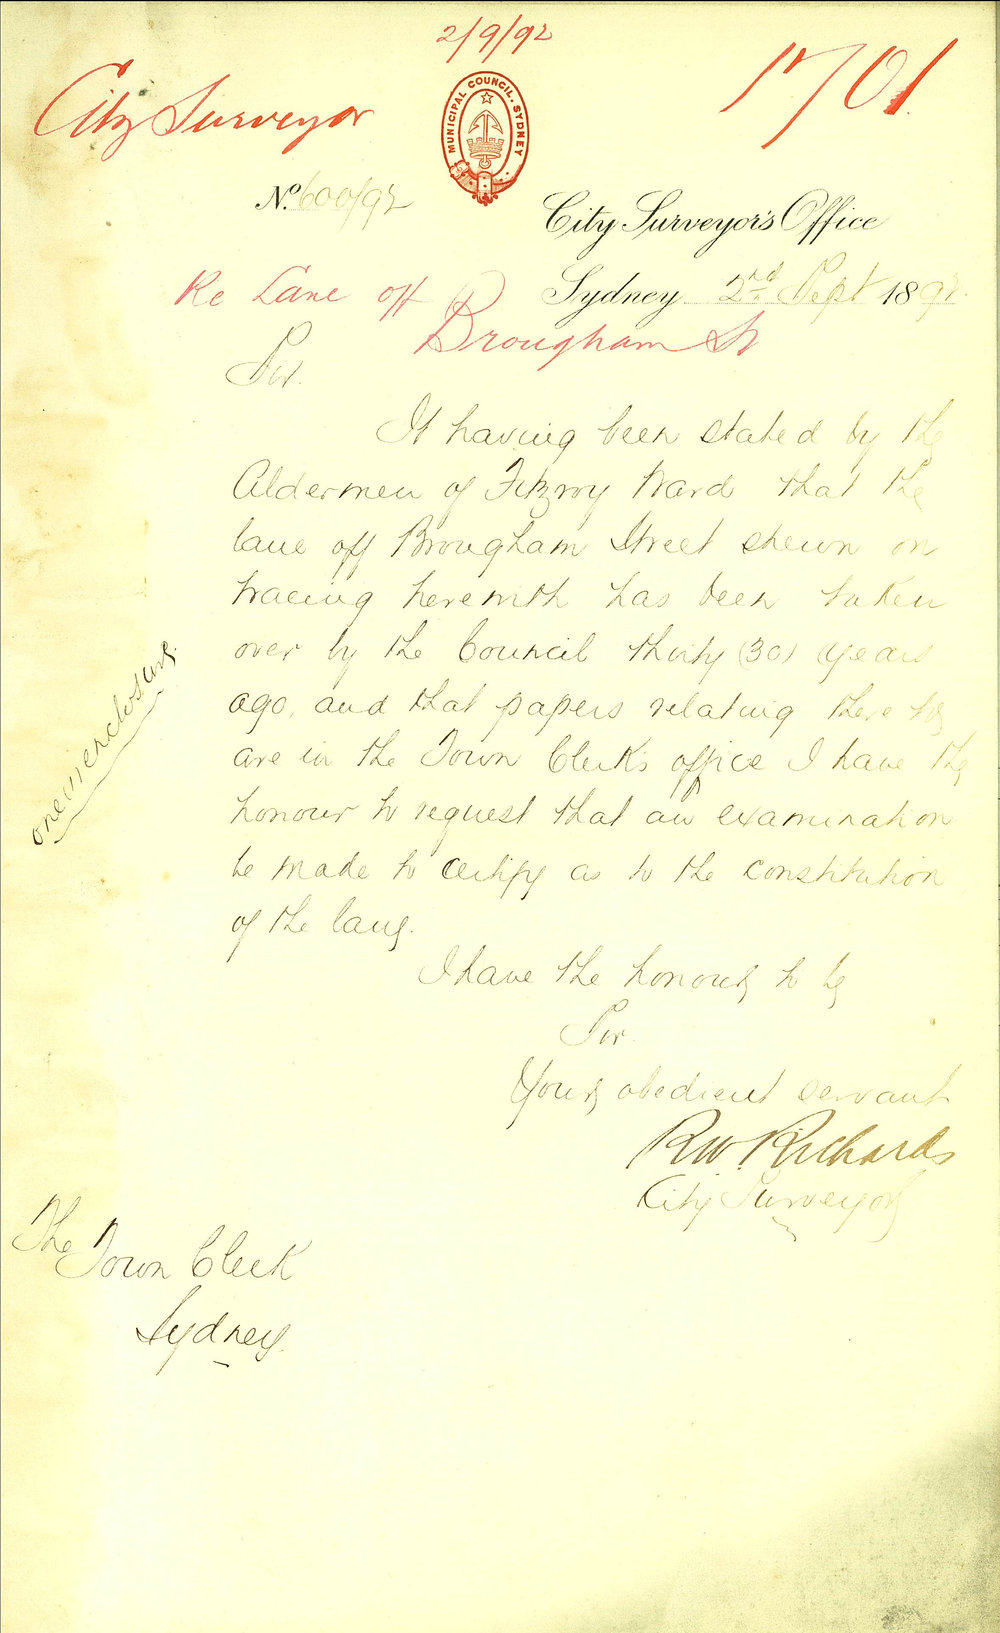 2/9/92
City Surveyor
1701
MUNICIPAL COUNCIL. SYDNEY
No. 600/92
City Surveyor's Office
Sydney 2nd Sept 1892
Re Lane off
Brougham St
Sir.
It having been stated by the
Aldermen of Fitzroy Ward that the
lane off Brougham Street shewn on
tracing herewith has been taken
over by the Council thirty (30) years
ago, and that papers relating thereto
are in the Town Clerk's office I have the
honour to request that an examination
be made to certify as to the constitution
of the lane.
I have the honour to be
Sir
Your obedient servant
R.W. Richards
City Surveyor
one enclosure.
The Town Clerk
Sydney.